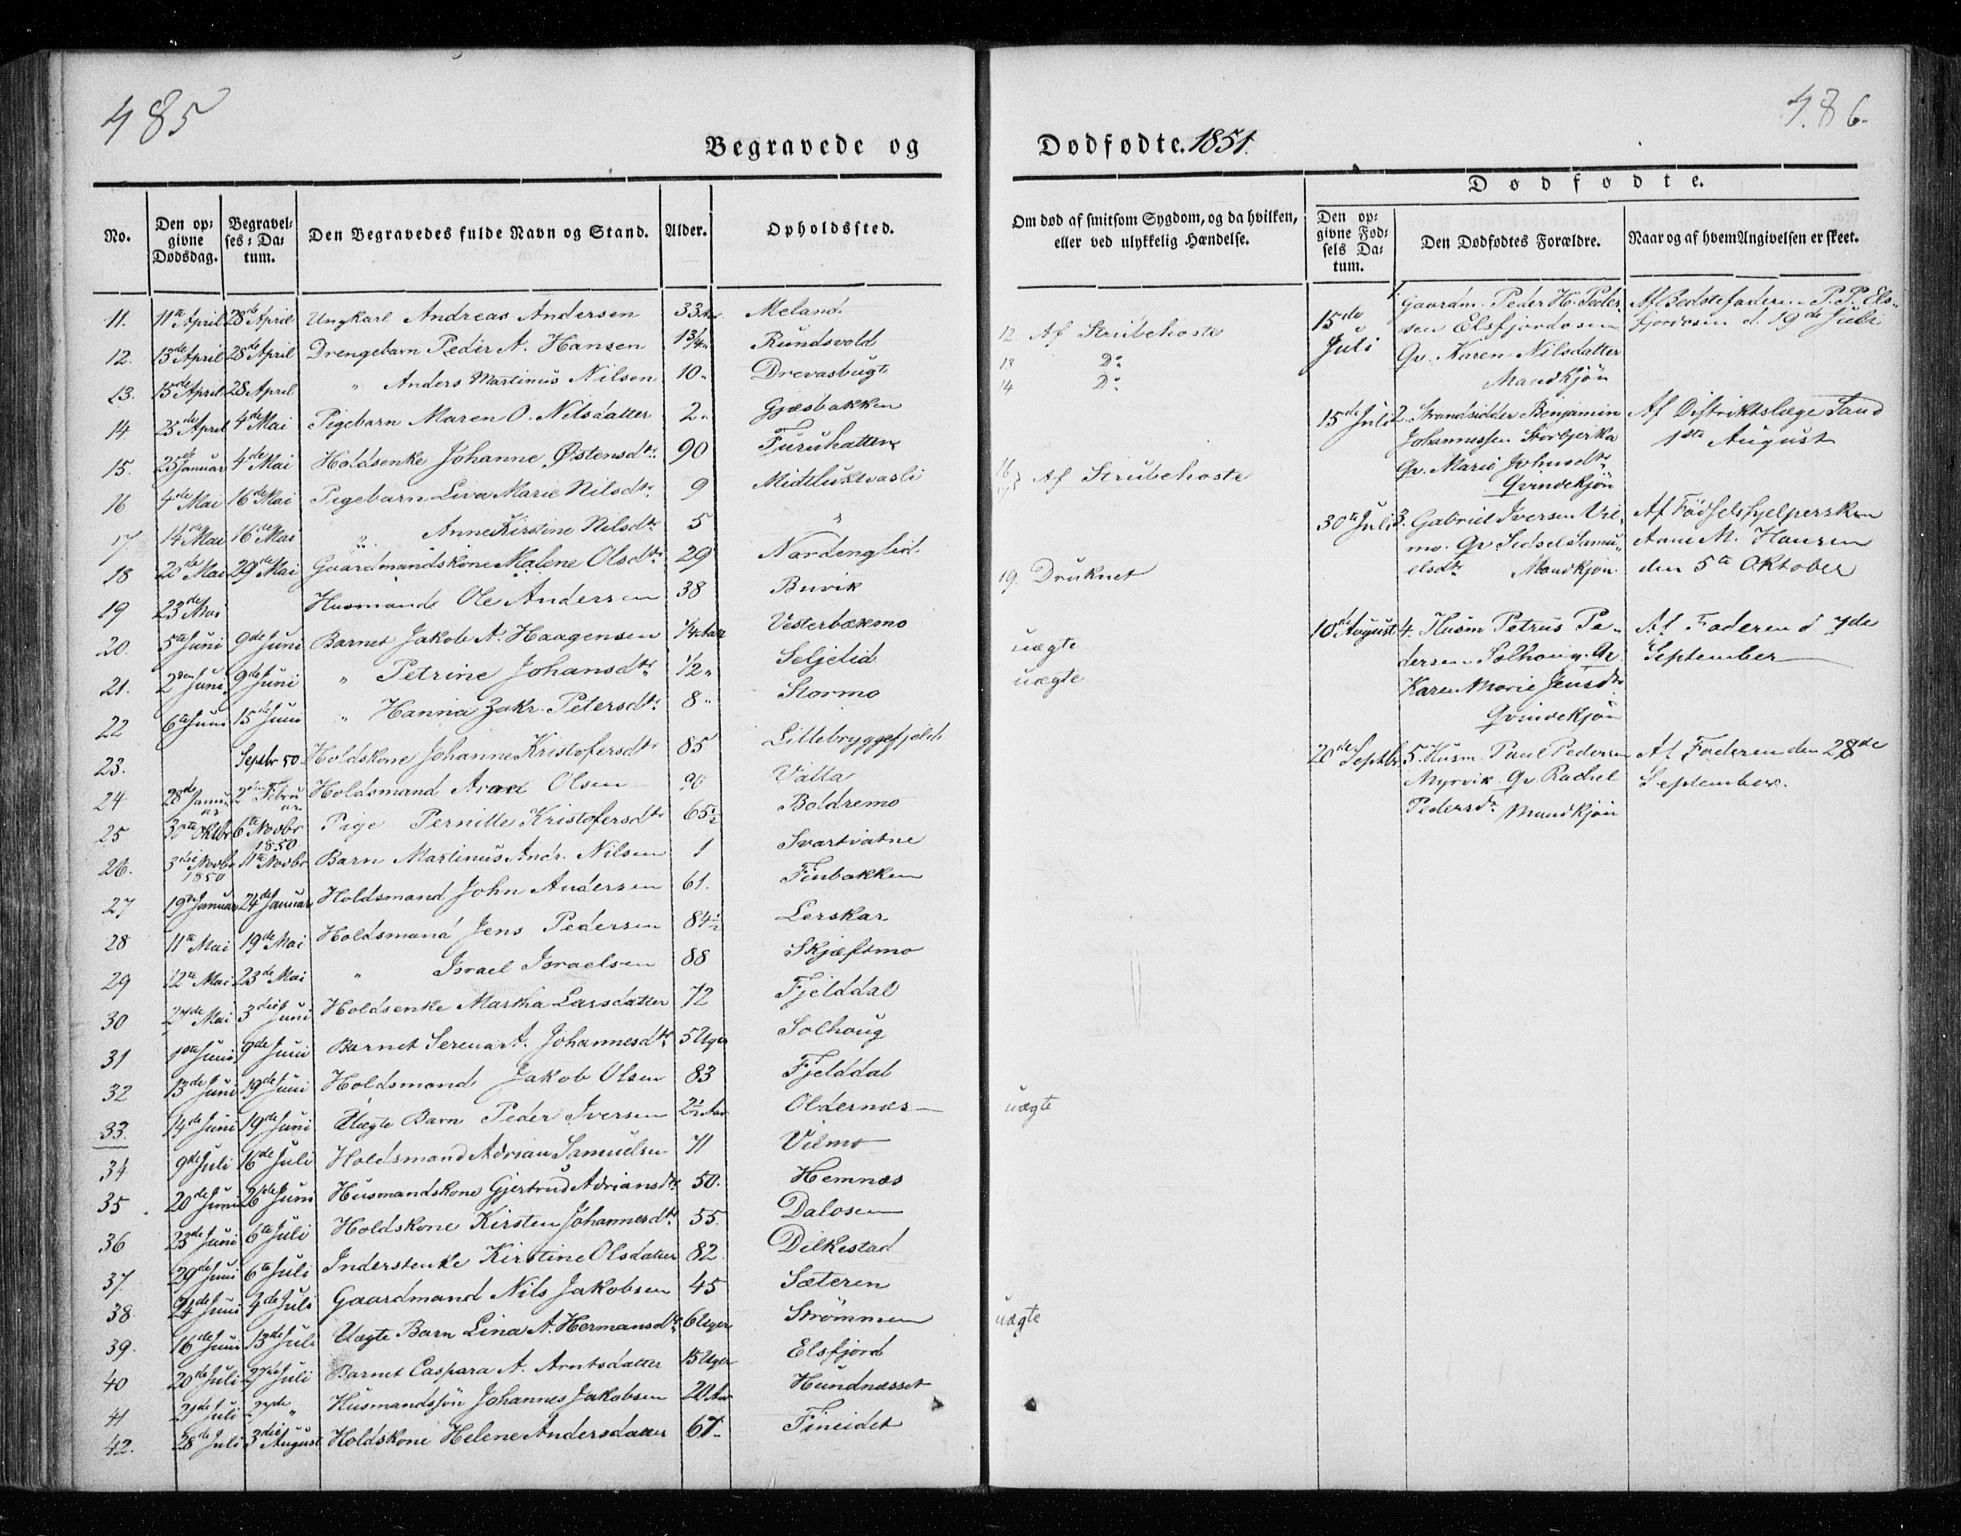 485
Begravede og
No. | Den opgivne Dødsdag. | Begravelses-Datum. | Den Begravedes fulde Navn og Stand. | Alder. | Opholdssted.
11. 11te April 28de April Ungkarl Andreas Andersen 33 Meland
12. 13de April 28de April Drengebarn Peder A. Hansen 1 3/4 Rundsvold
13. 15de April 28 April " Anders Martinus Nilsen 10 Drevasbugt
14 25de April 4de Mai Pigebarn Maren O. Nilsdatter 2 Gjæsbakken
15. 23de Januar 4de Mai Holdsenke Johanne Østensdtr. 90 Furuhatten
16 4de Mai 16de Mai Pigebarn Liva Marie Nilsdtr. 9 Midtluktvasli
17. 14de Mai 16de Mai " Anne Kirstine Nilsdtr 5 "
18 20de Mai 29de Mai Gaardmandskone Malene Olsdtr. 29
19 23de Mai Husmand Ole Andersen 38 Buvik
20. 5te Juni 9de Juni Barnet Jakob A. Haagensen 1/4 Aar Vesterbækmo
21. 2den Juni 9de Juni " Petrine Johansdtr. 1/2 " Seljelid
22 6te Juni 15de Juni " Hanna Zakr. Petersdtr. 8 " Stormo
23. Septbr 50. Holdskone Johanne Kristofersdtr 85 Littebryggefjeldt
24 28de Januar 2den Februar Holdsmand Olsen 90 Valla
25 30te Oktbr 6te Novbr 1850 Pige Pernille Kristofersdtr 65 1/2 Boldremo
26. 3die Novbr 1850 11te Novbr Barn Martinus Andr. Nilsen 1 Svartvatne
27 19de Januar 24de Januar Holdsmand John Andersen 61. Finbakken
28 11te Mai 19de Mai Holdsmand Jens Pedersen 84 1/2 Lerskar
29 12te Mai 23de Mai " Israel Israelsen 88 Skjæftmo
30 27de Mai 3die Juni Holdsenke Martha Larsdatter 72 Fjelddal
31 1ste Juni 9de Juni Barnet Serena A. Johannesdtr. 5 Uger Solhoug
32 13de Juni 19de Juni Holdsmand Jakob Olsen 83 Fjelddal
33. 14de Juni 19de Juni Uægte Barn Peder Iversen 2 1/2 Aar Oldernæs
34 9de Juli 16de Juli Holdsmand Adrian Samuelsen 71 Vilmo
35 20de Juni 26de Juni Husmandskone Gjertrud Adriansdtr. 50. Hemnæs
36 23de Juni 6te Juli Holdskone Kirsten Johannesdtr. 55. Dalosen
37. 29de Juni 6te Juli Inderstenke Kirstine Olsdatter 82. Dilkestad
38. 24de Juni 4de Juli Gaardmand Nils Jakobsen 45 Sæteren
39. 16de Juni 13de Juli Uægte Barn Lina A. Hermansdtr. 6 Uger Strømmen
40 20de Juli 27de Juli Barnet Caspara A. Arntsdatter 15 Uger Elsfjord
41 21de Juli 27de " Husmandssøn Johannes Jakobsen 20 Aar Hundnæsset
42. 28de Juli 3die August Holdskone Helene Andersdatter 67 Fineidet
486.
Dødfødte. 1851.
Om død af smitsom Sygdom, og da hvilken, eller ved ulykkelig Hændelse. | Dødfødte. | Den opgivne Fødsels Datum. | Den Dødfødtes Forældre. | Naar og af hvem Angivelsen er skeet.
12 Af Strubehoste
13 Do
14 Do
16
17 } Af Strubehoste
19. Druknet
uægte
uægte
uægte
uægte
15de Juli
1. Gaardm. Peder H. Peder-
sen Elsfjordosen
Qv. Karen Nilsdatter
Mandkjøn
Af Bedstefaderen P. P. Els-
fjordosen d. 19de Juli
15de Juli 2. Strandsidder Benjamin
Johannessen Storbjerka
Qv. Marie Johnsdtr
Qvindekjøn
Af Distriktslæge Sand
1ste August
30te Juli 3. Gabriel Iversen Vil-
mo. Qv Sidsel Samu-
elsdtr. Mandkjøn.
Af Fødselshjelpersken
Anne M. Hansen
den 5te Oktober
10de August 4. Husm Petrus Pe-
dersen Solhoug. Qv.
Karen Marie Jensdtr
Qvindekjøn
Af Faderen d 7de
September
20de Septbr 5. Husm. Paul Pedersen
Myrvik. Qv. Rachel
Pedersdtr. Mandkjøn
Af Faderen den 28de
September.